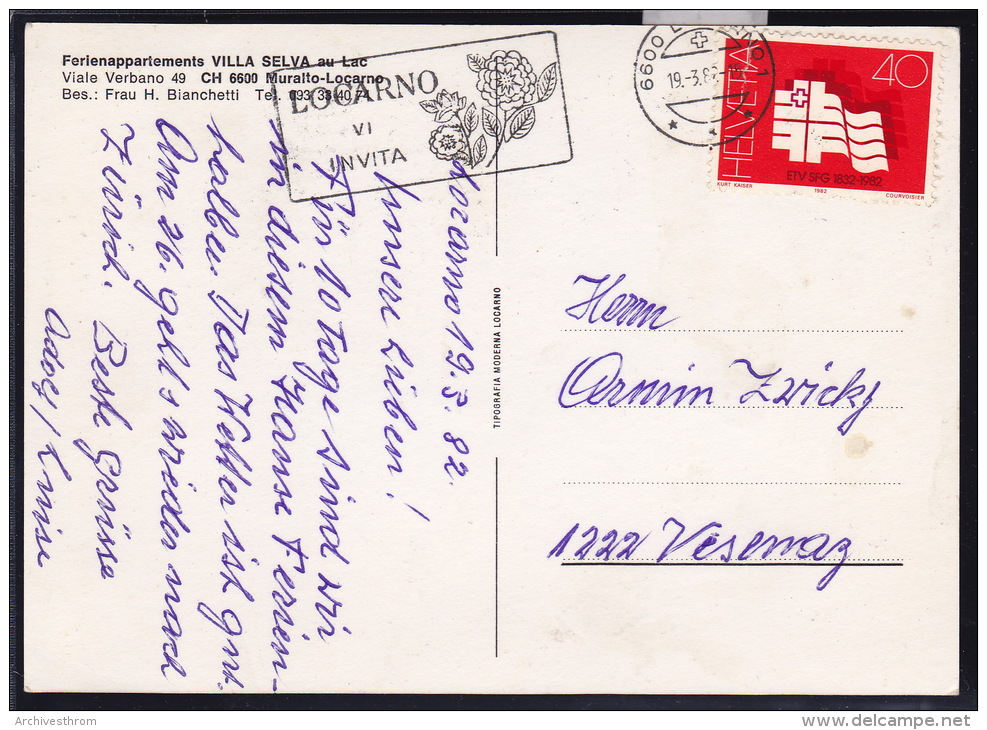 Ferienappartements VILLA SELVA au Lac
Viale Verbano 49 CH 6600 Muralto-Locarno
Bes.: Frau H. Bianchetti Tel. 093 33 40 74
LOCARNO
VI
INVITA
6600 LOCARNO 1
19.-3.82.-
HELVETIA
40
ETV SFG 1832-1982
KURT KAISER 1982 COURVOISIER
Locarno 19.3.82.
Unsere Lieben!
Für 10 Tage sind wir
in diesem Hause Ferien-
halber. Das Wetter ist gut.
Am 26. geht's wieder nach
Zürich. Beste Grüsse
Adolf / Luise
TIPOGRAFIA MODERNA LOCARNO
Herrn
Armin Zwicky
1222 Vésenaz
Archivesthrom
delcampe.net